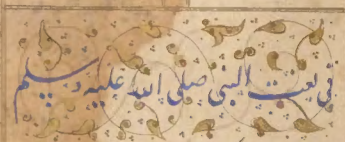 فی نعت النبی صلی الله علیه وسلم